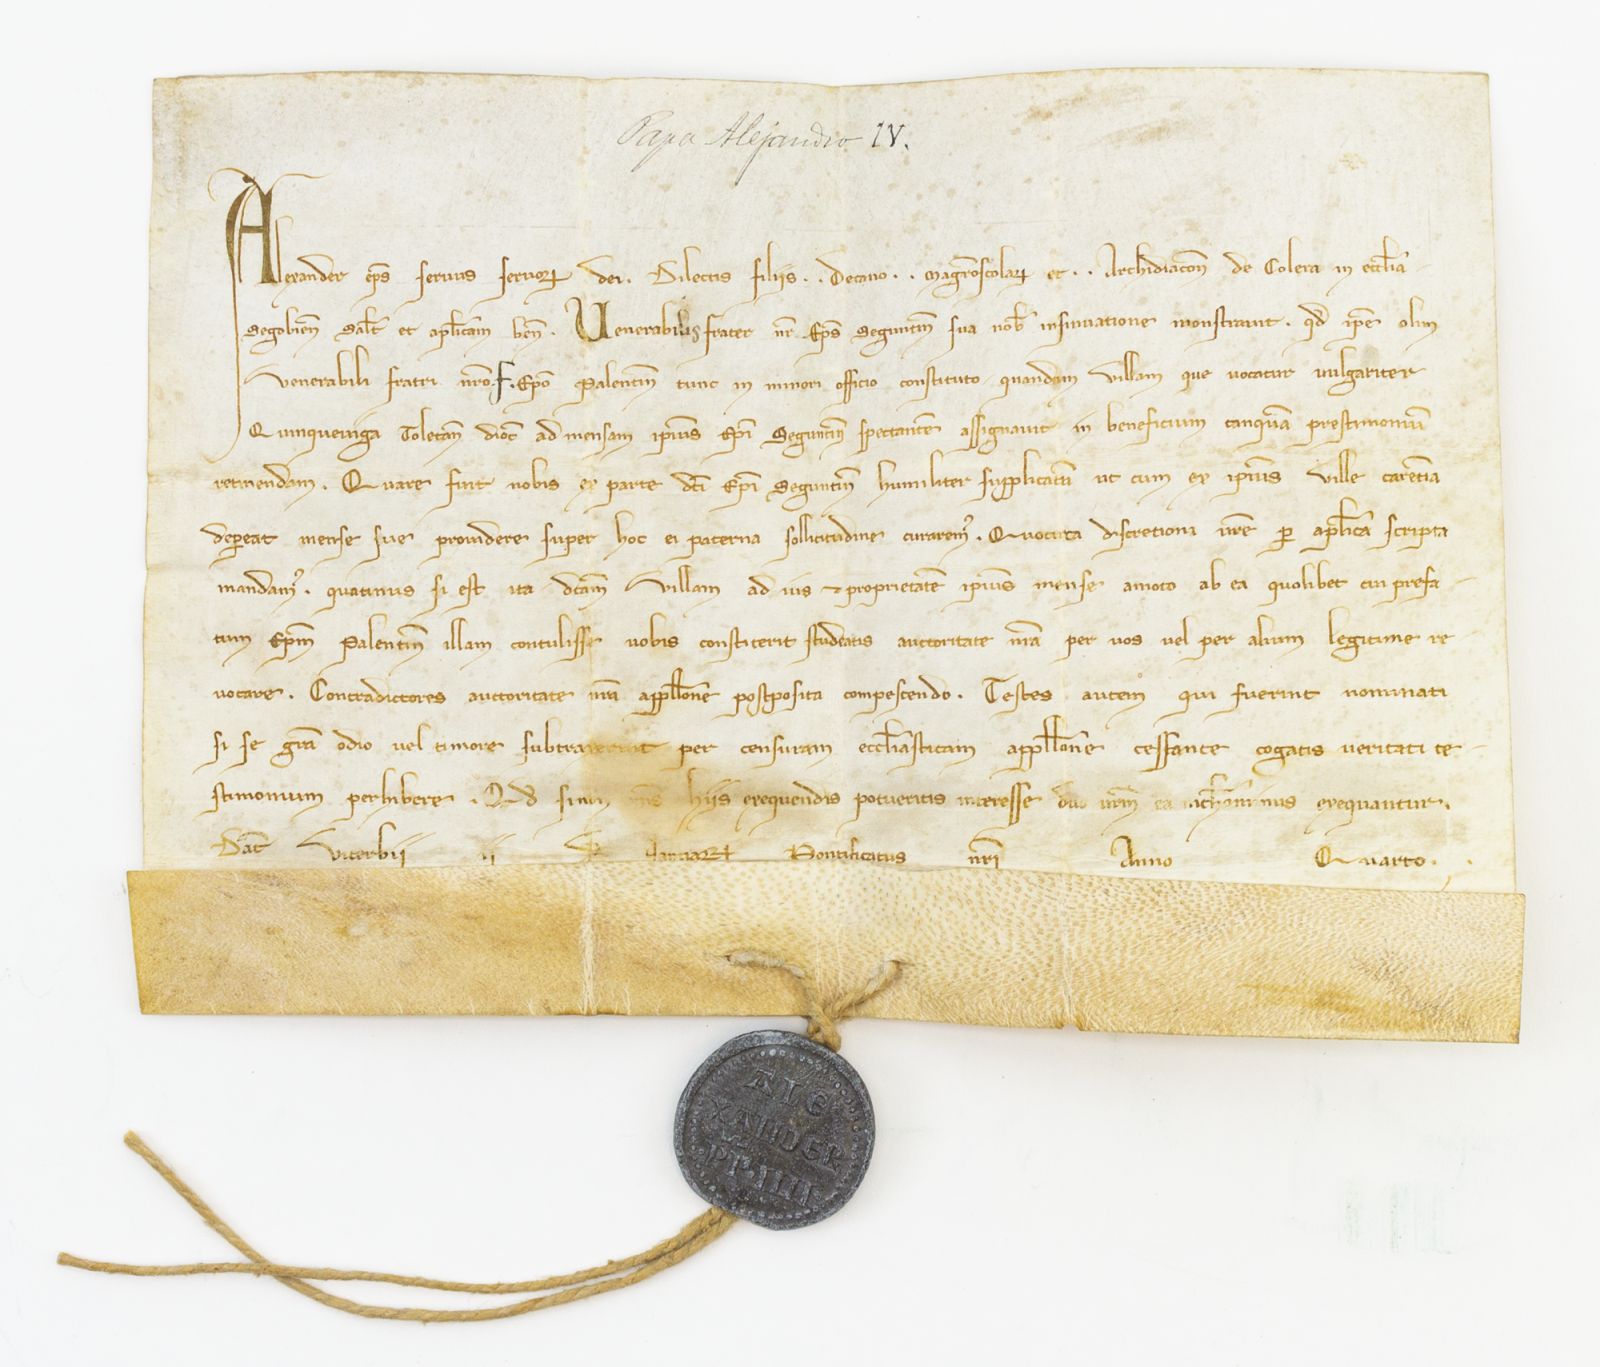 Papa Alejandro IV.
Alexander ep̅s seruus seruoꝝ dei. Dilectis filiis . . Decano . . magr̅oscolaꝝ et . . Archidiacon̅ de Colera in eccl̅ia
Segobien̅ Sal̅t et ap̅licam ben̅. Uenerabilis frater nr̅ Ep̅s Seguntin̅ sua nob̅ insinuatione monstrauit. qd̅ ip̅e olim
venerabili fratri nr̅o .F. Ep̅o Palentin̅ tunc in minori officio constituto quandam villam que uocatur uulgariter
Quinqueiuga Toletan̅ dioc̅ ad mensam ip̅ius Ep̅i Seguntin̅ spectante̅ assignauit in beneficium tanqua̅ prestimoniu̅
retinendam. Quare fuit nobis ex parte dc̅i Ep̅i Seguntin̅ humiliter supplicatu̅ ut cum ex ip̅ius ville care̅tia
dep̅eat mense sue prouidere super hoc ei paterna sollicitudine curarem᾿. Quocirca discretioni ur̅e per ap̅lica scripta
mandam᾿. quatinus si est ita dc̅am villam ad ius ⁊ proprietate̅ ip̅ius mense amoto ab ea quolibet cui prefa
tum Ep̅m Palentin̅ illam contulisse uobis constiterit studeatis auctoritate nr̅a per uos uel per alium legitime re
uocare. Contradictores auctoritate nr̅a appell̅one postposita compescendo. Testes autem qui fuerint nominati
si se gr̅a odio uel timore subtraxerint per censuram eccl̅iasticam appell̅one cessante cogatis ueritati te
stimonium perhibere. Qd̅ si non om̅s hiis exequendis potueritis interesse duo ur̅m ea nichilominus exequantur.
Dat̅ Viterbii ii K̅l Januaꝝ Pontificatus nr̅i Anno Quarto.
ALE
XANDER
PP·IIII